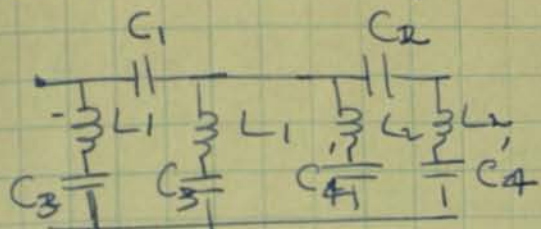 C1 C2
L1 L1 L2 L2
C3 C3 C4 C4